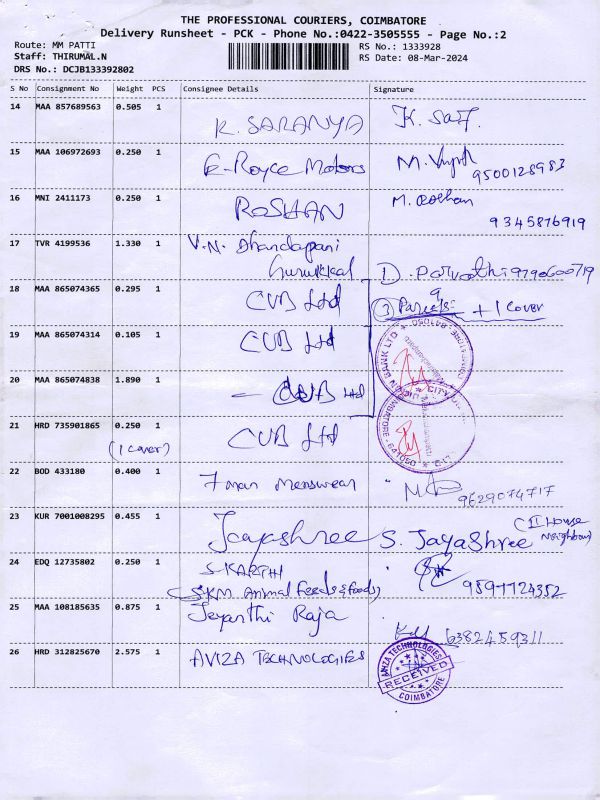 THE PROFESSIONAL COURIERS, COIMBATORE
Delivery Runsheet - PCK - Phone No.:0422-3505555 - Page No.:2
Route: MM PATTI
RS No.: 1333928
Staff: THIRUMAL.N
RS Date: 08-Mar-2024
DRS No.: DCJB133392802
S No Consignment No Weight PCS Consignee Details Signature
14 MAA 857689563 0.505 1 K. SARANYA K. Saf.
15 MAA 106972693 0.250 1 E-Royce Motors M.
9500128983
16 MNI 2411173 0.250 1 ROSHAN M. Roshan
9345876919
17 TVR 4199536 1.330 1 V.N. Dhandapani
Gurukkal D. Parvathi 9790600719
18 MAA 865074365 0.295 1 CUB Ltd 3 Parcels + 1 Cover
19 MAA 865074314 0.105 1 CUB Ltd
20 MAA 865074838 1.890 1 CUB Ltd
21 HRD 735901865 0.250 1 CUB Ltd
(1 Cover)
22 BOD 433180 0.400 1 7 man menswear
9629074717
23 KUR 7001008295 0.455 1 Jayashree S. JayaShree (II House Neighbour)
24 EDQ 12735802 0.250 1 S. KARTHI
(SKM Animal Feeds & foods) 9597724352
25 MAA 108185635 0.875 1 Jeyanthi Raja
6382459311
26 HRD 312825670 2.575 1 AVIZA TECHNOLOGIES
AVIZA TECHNOLOGIES
RECEIVED
COIMBATORE